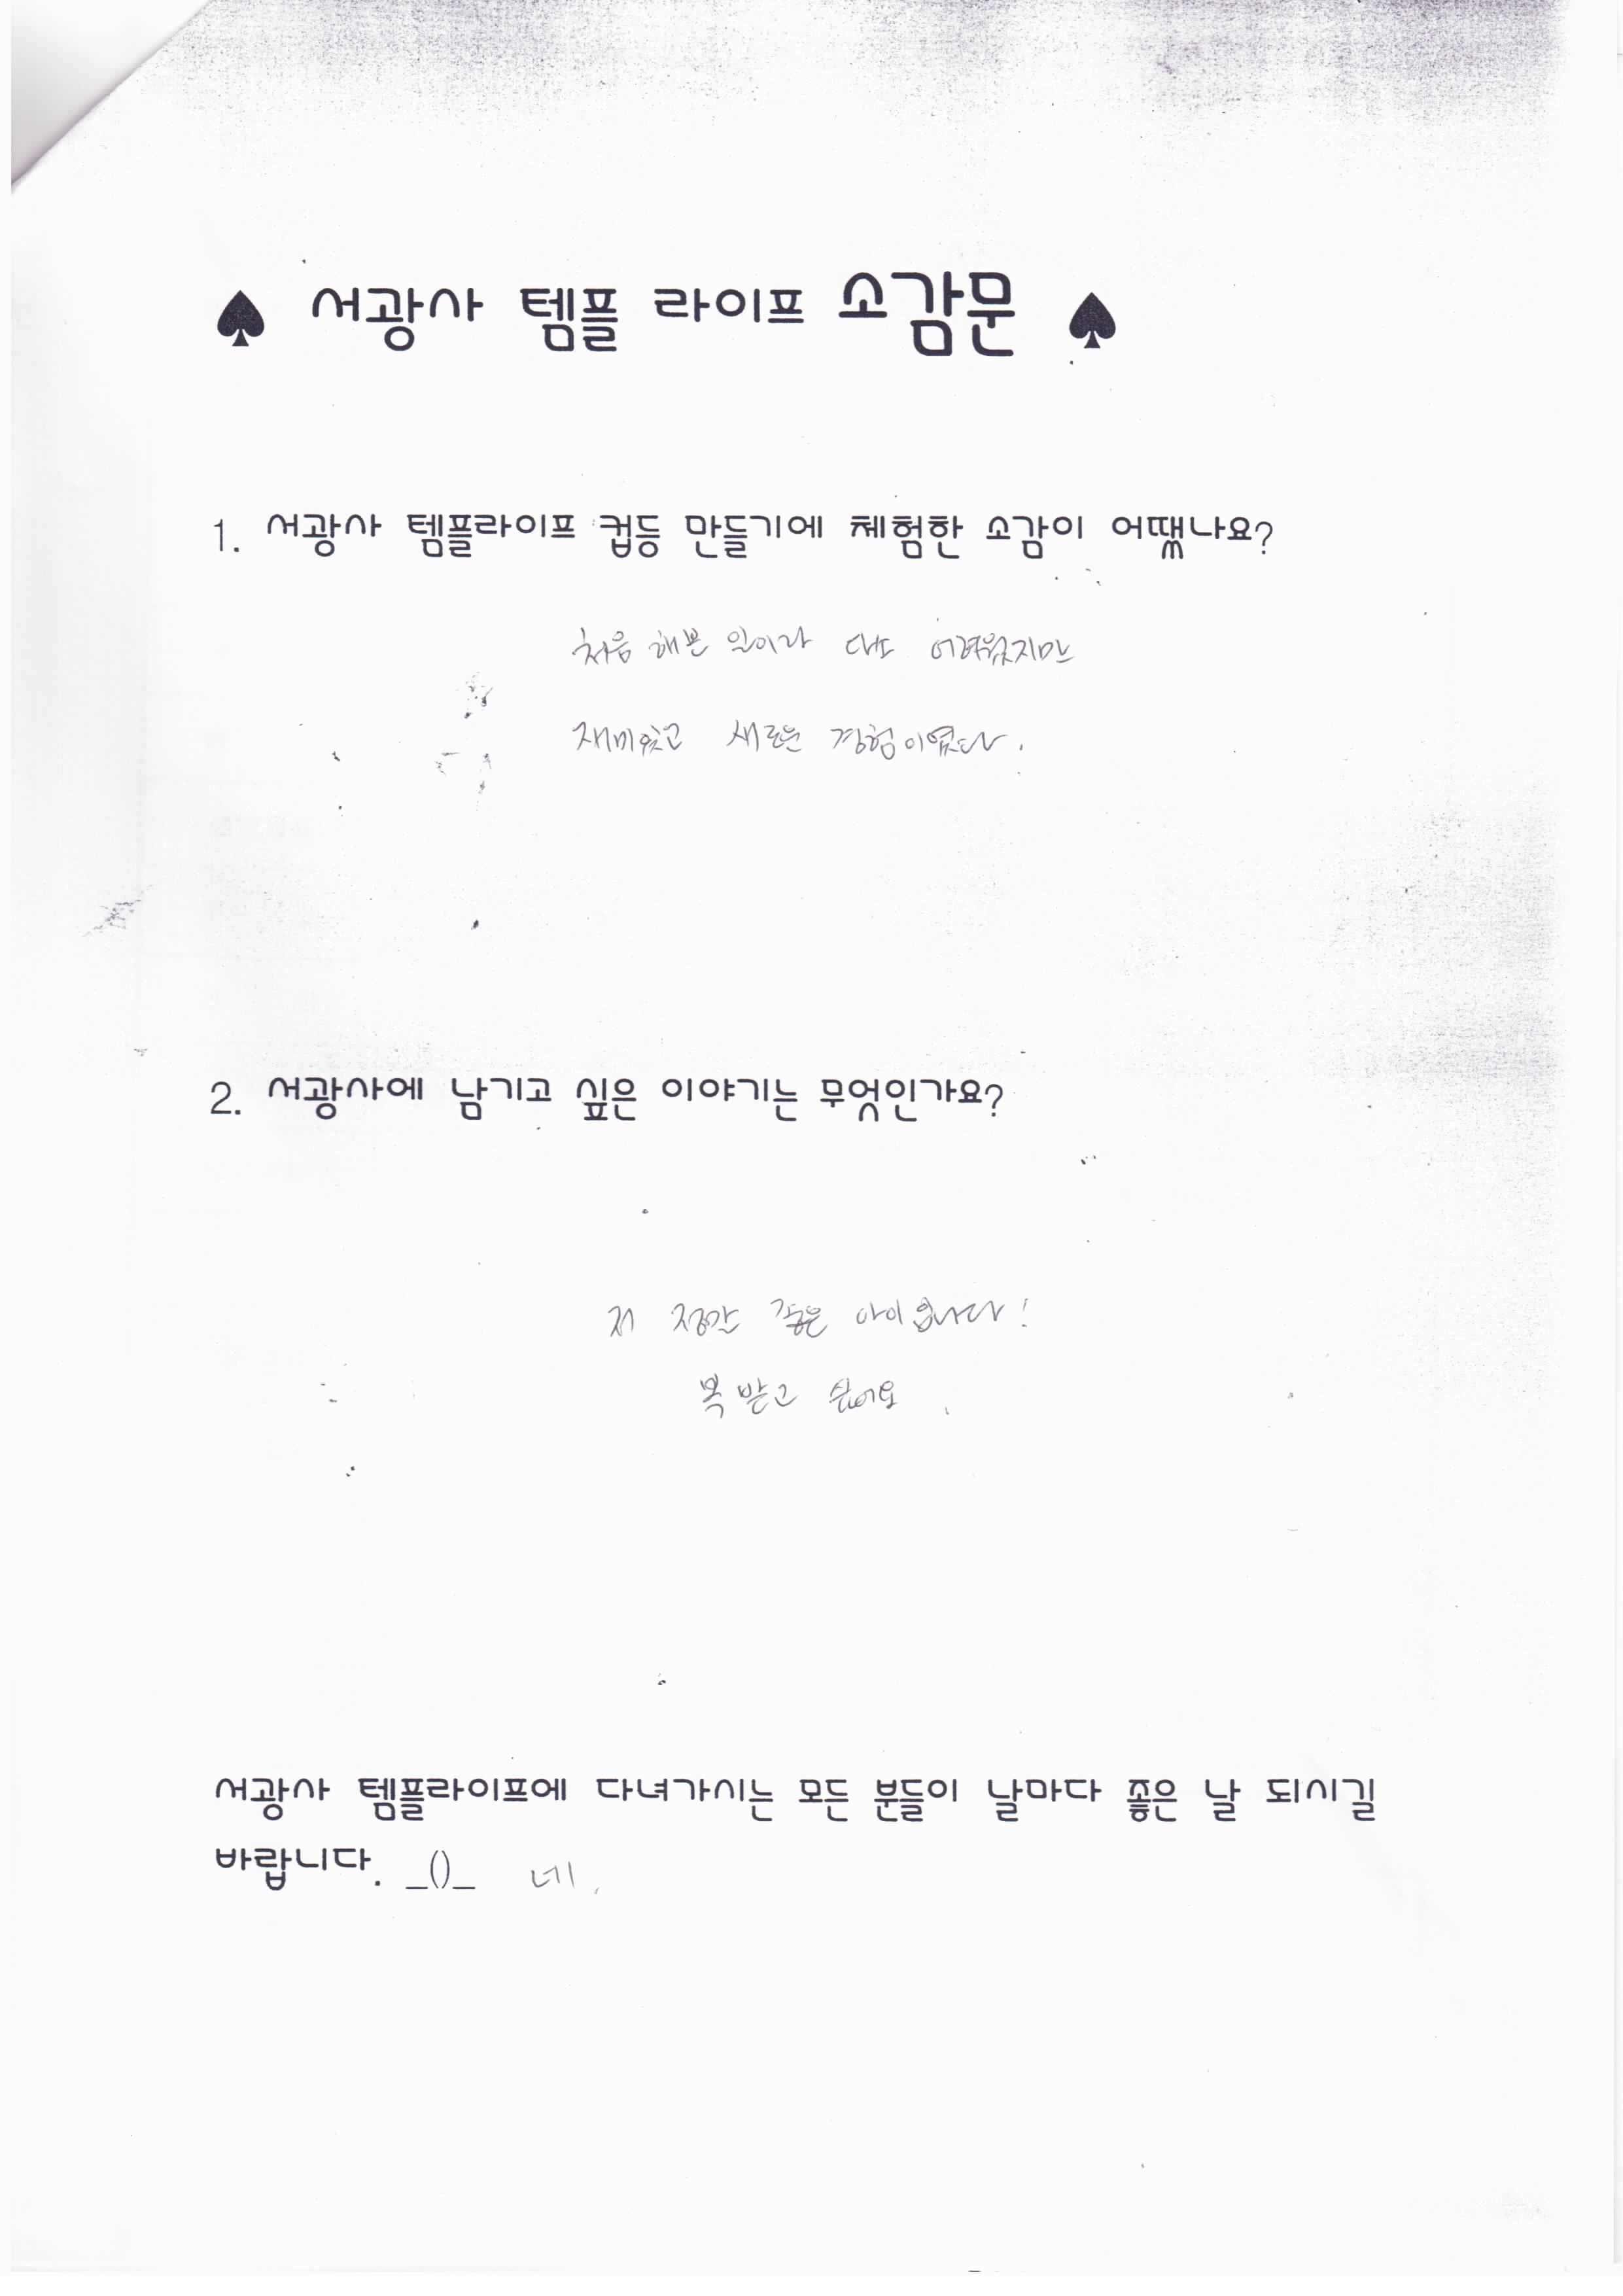 ♠ 서광사 템플 라이프 소감문 ♠
1. 서광사 템플라이프 컵등 만들기에 체험한 소감이 어땠나요?
처음 해본 일이라 어려웠지만
재미있고 새로운 경험이였다.
2. 서광사에 남기고 싶은 이야기는 무엇인가요?
저 정말 좋은 아이입니다!
복 받고 싶어요.
서광사 템플라이프에 다녀가시는 모든 분들이 날마다 좋은 날 되시길
바랍니다. _()_ 네.